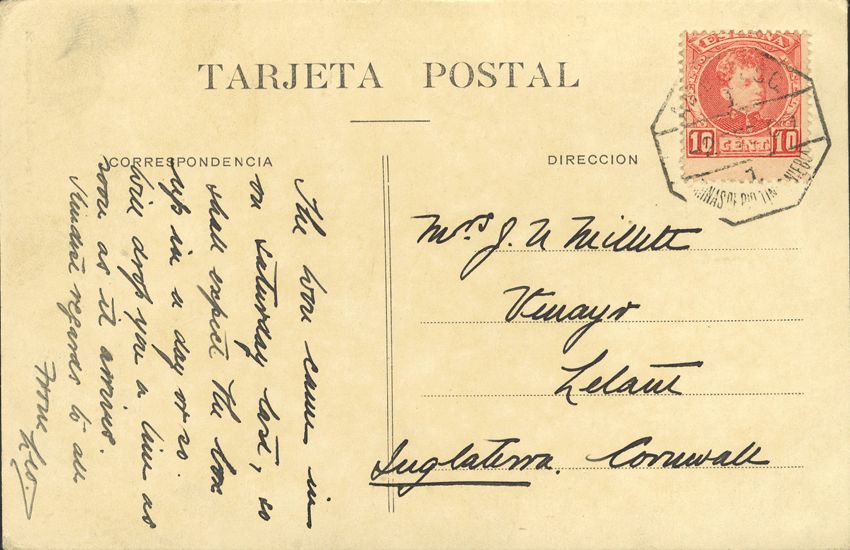 TARJETA POSTAL
CORRESPONDENCIA
DIRECCION
ESPAÑA
10 CENT 10
MINAS DE RIO TIN
The boat came in
on Saturday last, so
shall expect the box
up in a day or so.
Will drop you a line as
soon as it arrives.
Kindest regards to all
From Leo.
Mrs J. N Millett
Lelant
Inglaterra. Cornwall